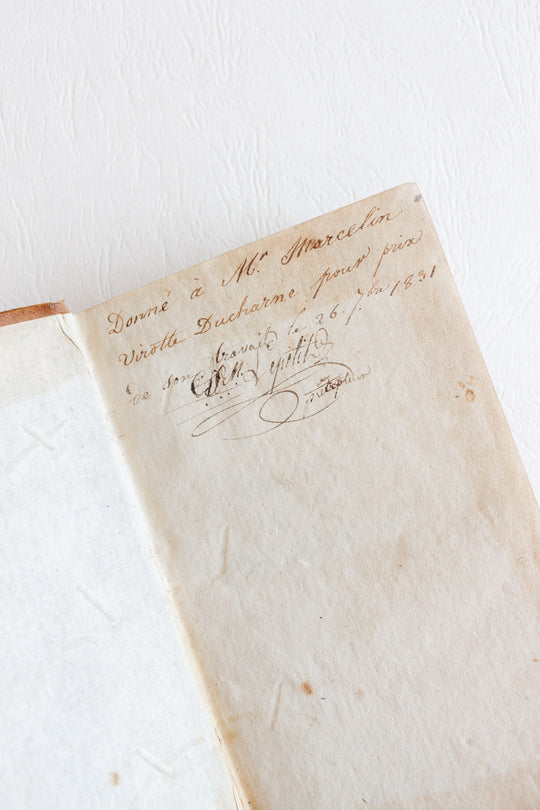 Donné à Mr. Marcelin
Virotte Ducharne pour prix
de son travail le 26. 7bre 1831
Petit
précepteur